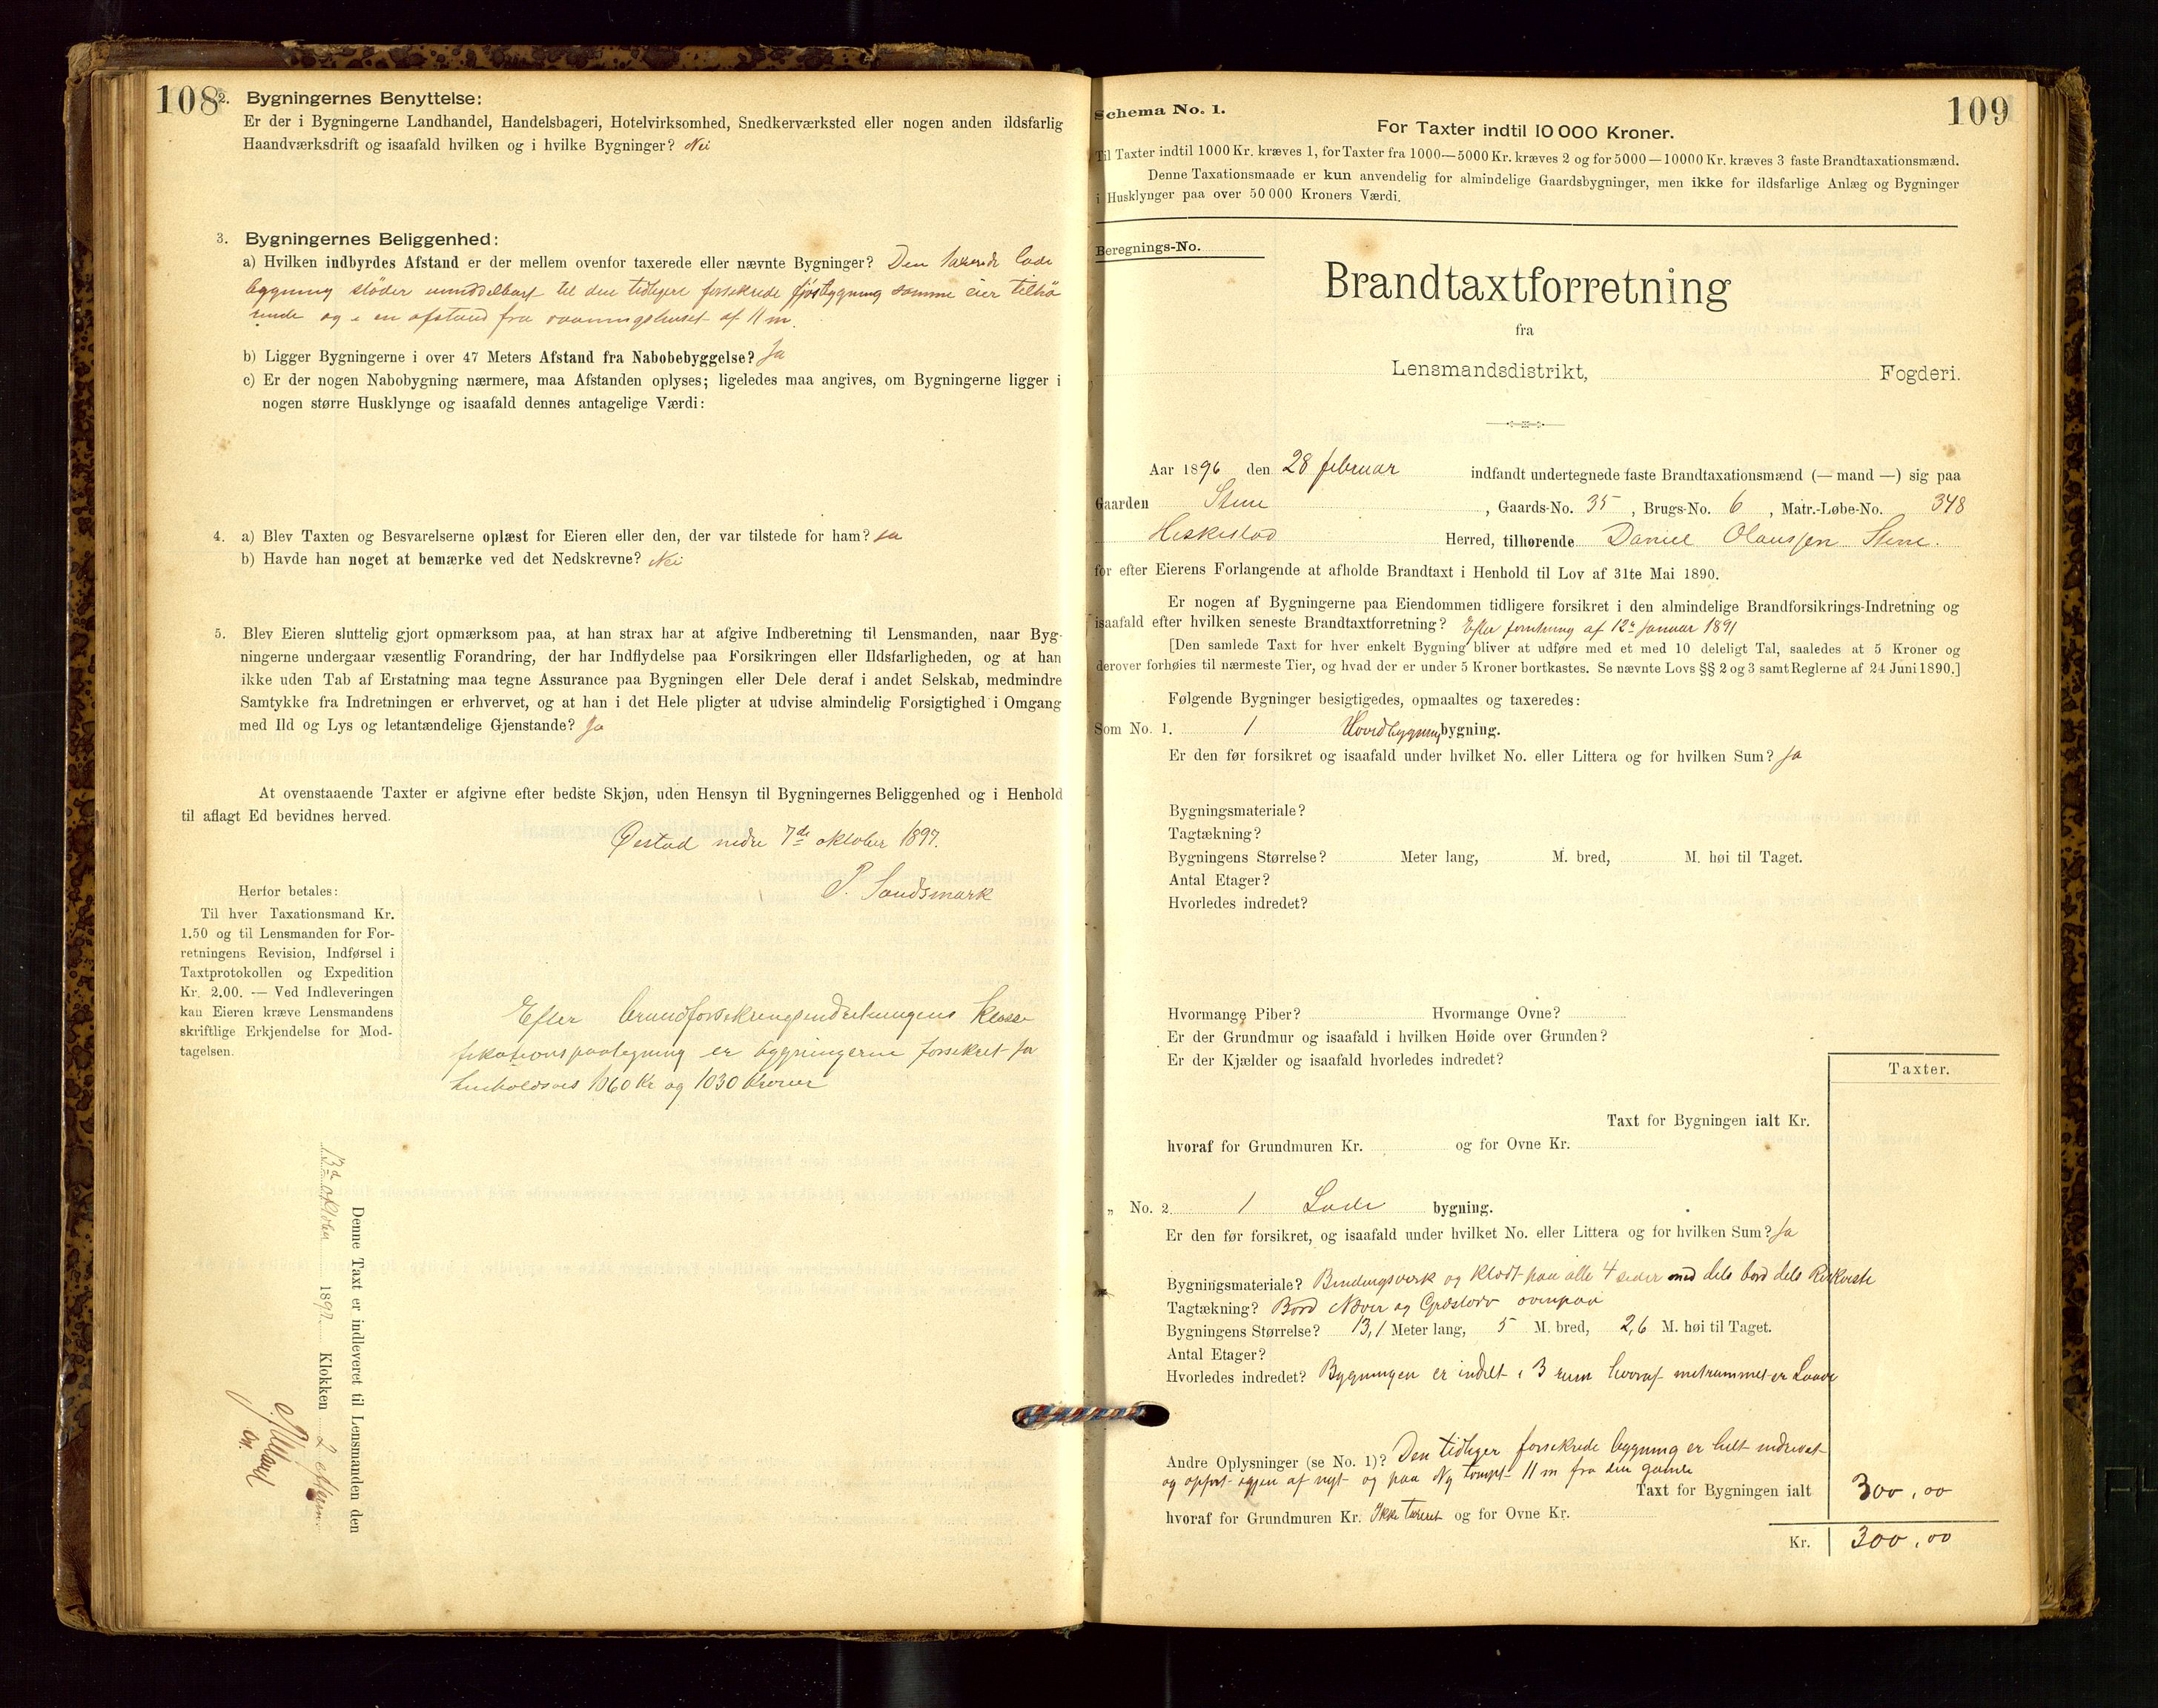 108
2. Bygningernes Benyttelse:
Er der i Bygningerne Landhandel, Handelsbageri, Hotelvirksomhed, Snedkerværksted eller nogen anden ildsfarlig
Haandværksdrift og isaafald hvilken og i hvilke Bygninger? Nei
3. Bygningernes Beliggenhed:
a) Hvilken indbyrdes Afstand er der mellem ovenfor taxerede eller nævnte Bygninger? Den taxerede lade
bygning støder umiddelbart til den tidligere forsikrede fjøsbygning samme eier tilhø
rende og i en afstand fra vaaningshuset af 11 m.
b) Ligger Bygningerne i over 47 Meters Afstand fra Nabobebyggelse? Ja
c) Er der nogen Nabobygning nærmere, maa Afstanden oplyses; ligeledes maa angives, om Bygningerne ligger i
nogen større Husklynge og isaafald dennes antagelige Værdi:
4. a) Blev Taxten og Besvarelserne oplæst for Eieren eller den, der var tilstede for ham? Ja
b) Havde han noget at bemærke ved det Nedskrevne? Nei
5. Blev Eieren sluttelig gjort opmærksom paa, at han strax har at afgive Indberetning til Lensmanden, naar Byg-
ningerne undergaar væsentlig Forandring, der har Indflydelse paa Forsikringen eller Ildsfarligheden, og at han
ikke uden Tab af Erstatning maa tegne Assurance paa Bygningen eller Dele deraf i andet Selskab, medmindre
Samtykke fra Indretningen er erhvervet, og at han i det Hele pligter at udvise almindelig Forsigtighed i Omgang
med Ild og Lys og letantændelige Gjenstande? Ja
At ovenstaaende Taxter er afgivne efter bedste Skjøn, uden Hensyn til Bygningernes Beliggenhed og i Henhold
til aflagt Ed bevidnes herved.
Østad nedre 7de oktober 1897.
P. Sandsmark
Herfor betales:
Til hver Taxationsmand Kr.
1.50 og til Lensmanden for For-
retningens Revision, Indførsel i
Taxtprotokollen og Expedition
Kr. 2.00. — Ved Indleveringen
kan Eieren kræve Lensmandens
skriftlige Erkjendelse for Mod-
tagelsen.
Efter brandforsikringsindretningens Klassi
fikationspaategning er bygningerne forsikret for
henholdsvis 1060 Kr og 1030 Kroner
Denne Taxt er indleveret til Lensmanden den
13de oktober 1897. Klokken 2 efterm.
109
Schema No. 1.
For Taxter indtil 10 000 Kroner.
Til Taxter indtil 1000 Kr. kræves 1, for Taxter fra 1000—5000 Kr. kræves 2 og for 5000—10000 Kr. kræves 3 faste Brandtaxationsmænd.
Denne Taxationsmaade er kun anvendelig for almindelige Gaardsbygninger, men ikke for ildsfarlige Anlæg og Bygninger
i Husklynger paa over 50 000 Kroners Værdi.
Beregnings-No.
Brandtaxtforretning
fra
Lensmandsdistrikt, Fogderi.
Aar 1896 den 28 februar indfandt undertegnede faste Brandtaxationsmænd (— mand —) sig paa
Gaarden Stene, Gaards-No. 35, Brugs-No. 6, Matr.-Løbe-No. 348
Heskestad Herred, tilhørende Daniel Olaussen Stene.
for efter Eierens Forlangende at afholde Brandtaxt i Henhold til Lov af 31te Mai 1890.
Er nogen af Bygningerne paa Eiendommen tidligere forsikret i den almindelige Brandforsikrings-Indretning og
isaafald efter hvilken seneste Brandtaxtforretning? Efter forretning af 12te Januar 1891
[Den samlede Taxt for hver enkelt Bygning bliver at udføre med et med 10 deleligt Tal, saaledes at 5 Kroner og
derover forhøies til nærmeste Tier, og hvad der er under 5 Kroner bortkastes. Se nævnte Lovs §§ 2 og 3 samt Reglerne af 24 Juni 1890.]
Følgende Bygninger besigtigedes, opmaaltes og taxeredes:
Som No. 1. 1 Hovedbygning bygning.
Er den før forsikret og isaafald under hvilket No. eller Littera og for hvilken Sum? Ja
Bygningsmateriale?
Tagtækning?
Bygningens Størrelse? Meter lang, M. bred, M. høi til Taget.
Antal Etager?
Hvorledes indredet?
Hvormange Piber? Hvormange Ovne?
Er der Grundmur og isaafald i hvilken Høide over Grunden?
Er der Kjælder og isaafald hvorledes indredet?
Taxter.
Taxt for Bygningen ialt Kr.
hvoraf for Grundmuren Kr. og for Ovne Kr.
„ No. 2. 1 Lade bygning.
Er den før forsikret, og isaafald under hvilket No. eller Littera og for hvilken Sum? Ja
Bygningsmateriale? Bindingsverk og Klædt paa alle 4 sider med dels bord dels
Tagtækning? Bord Næver og Græstorv ovenpaa
Bygningens Størrelse? 13,1 Meter lang, 5 M. bred, 2,6 M. høi til Taget.
Antal Etager?
Hvorledes indredet? Bygningen er indelt i 3 rum hvoraf midtrummet er Laave
Andre Oplysninger (se No. 1)? Den tidliger forsikrede bygning er helt nedrevet
og opført igjen af nyt og paa Ny tompt 11 m fra den gamle
Taxt for Bygningen ialt 300,00
hvoraf for Grundmuren Kr. Ikke taxeret og for Ovne Kr.
Kr. 300,00